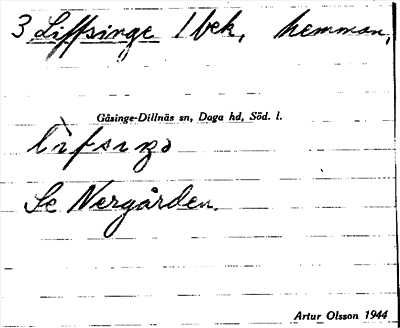 3 Liffsinge 1 bek. hemman,
Gåsinge-Dillnäs sn, Daga hd, Söd. l.
Se Nergården.
Artur Olsson 1944